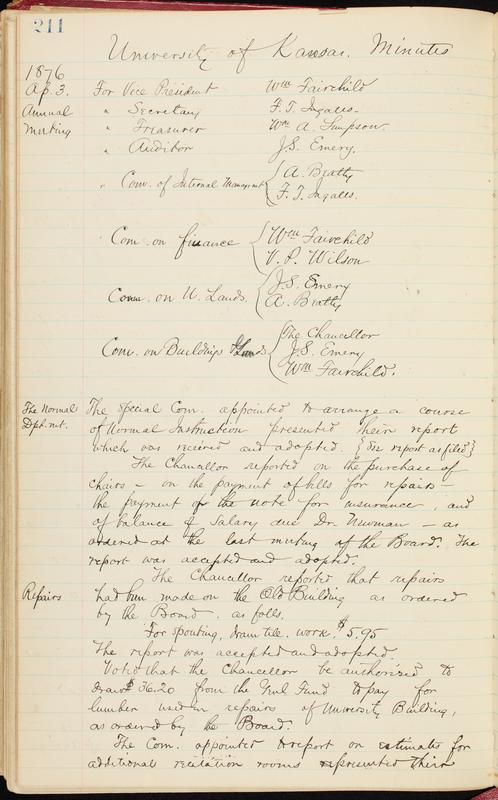 211
University of Kansas. Minutes
1876
Ap. 3. For Vice President Wm Fairchild
Annual " Secretary F. T. Ingalls.
Meeting " Treasurer Wm A. Simpson.
" Auditor J. S. Emery.
" Com. of Internal Managmnt { A. Beatty
F. T. Ingalls.
Com. on finance { Wm Fairchild
V. P. Wilson
Com. on U. Lands. { J. S. Emery
A. Beatty
Com. on Buildings { The Chancellor
J. S. Emery
Wm Fairchild.
The Normal The special Com. appointed to arrange a course
Dpt. mt. of Normal Instruction presented their report
which was received and adopted. {See report as filed}
The Chancellor reported on the purchase of
chairs – on the payment of bills for repairs –
the payment of the note for insurance, and
of balance of Salary due Dr. Newman – as
ordered at the last meeting of the Board. The
report was accepted and adopted.
The Chancellor reported that repairs
Repairs had been made on the Old Building as ordered
by the Board. as folls.
For spouting, drain tile. work. $5.95
The report was accepted and adopted.
Voted that the Chancellor be authorized to
draw $36.20 from the Gnl Fund to pay for
lumber used in repairs of University Building,
as ordered by the Board.
The Com. appointed to report on estimates for
additional recitation rooms represented their